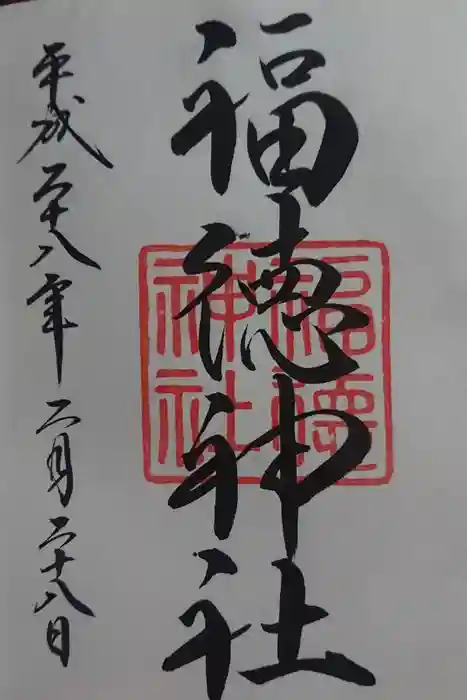 福徳神社
福徳神社
平成二十八年二月二十八日